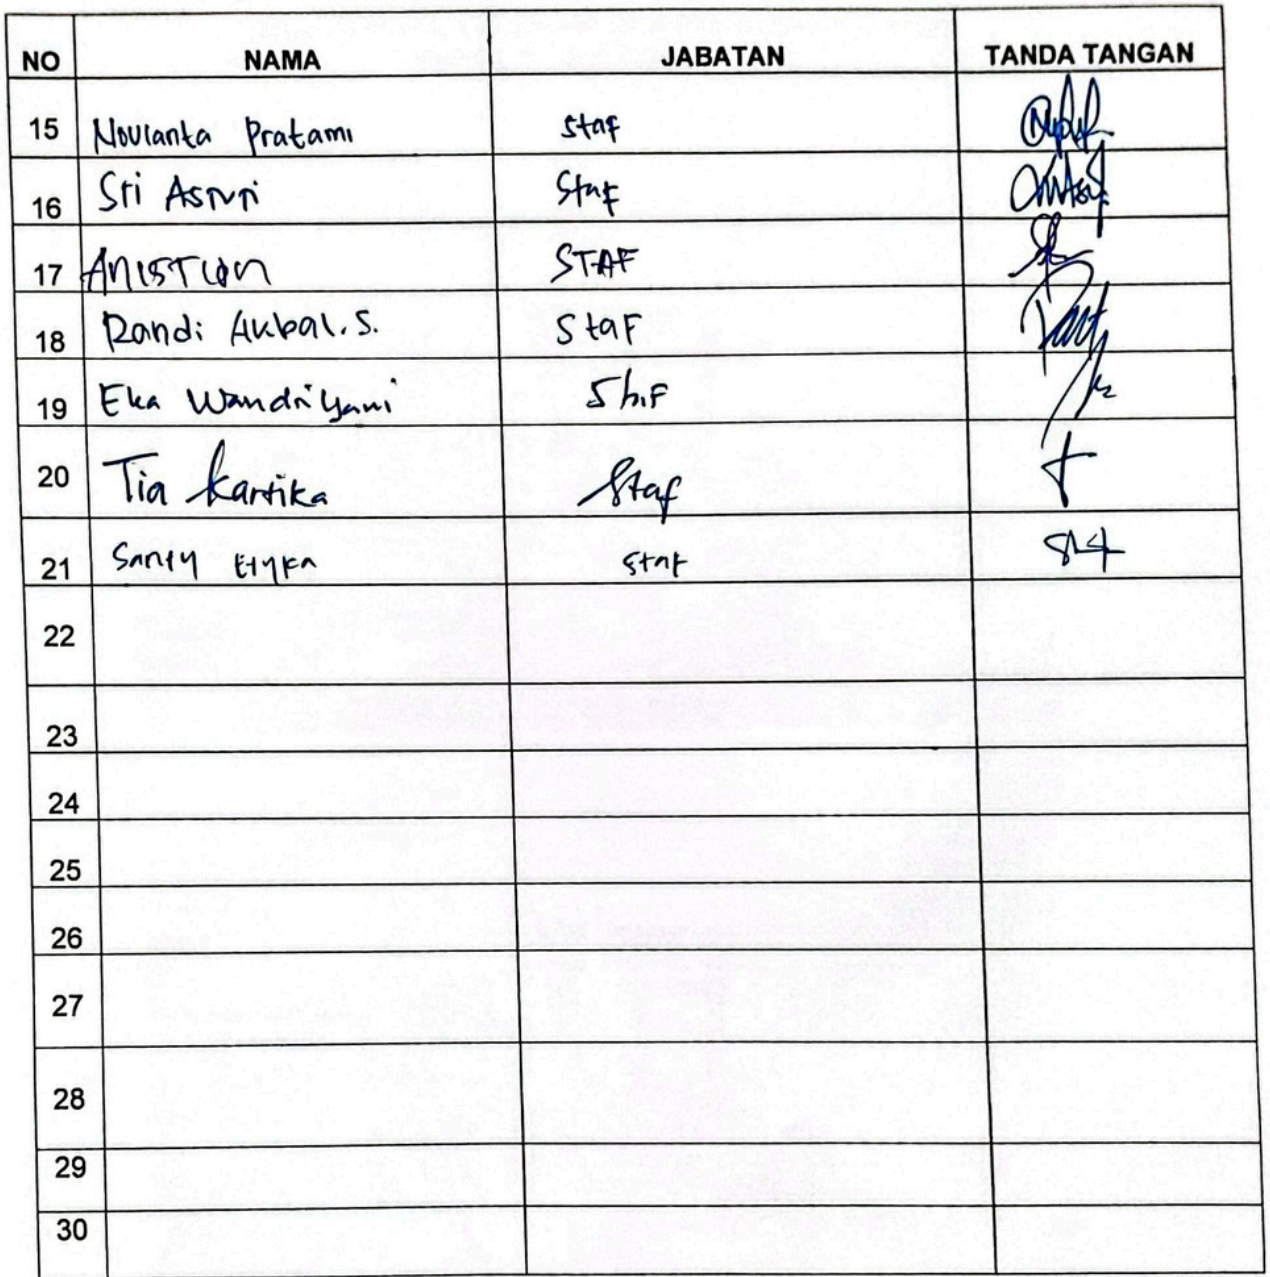 NO NAMA JABATAN TANDA TANGAN
15 Novianta Pratami Staf
16 Sri Astuti Staf
17 STAF
18 Randi Akbal.S. Staf
19 Eka Wandriyani Staf
20 Tia Kartika Staf
21 Santy Etyka Staf
22
23
24
25
26
27
28
29
30